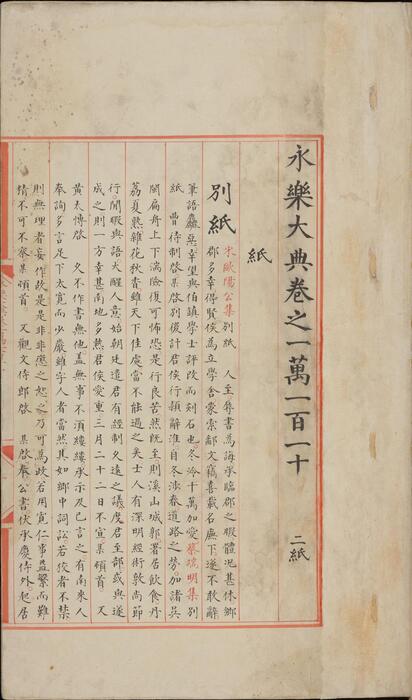 永樂大典卷之一萬一百一十
二紙
紙
別紙
宋歐陽公集別紙
人至辱書為誨承臨郡之暇體況甚休鄉
郡多幸得賢侯為立學舍蒙索鄙文竊喜載名廡下遂不敢辭
筆語麤惡幸望與伯鎮學士評改而刻石也冬冷千萬加愛蔡琬明集別
紙
曹侍制啓某啓別後計君侯行顿辭淮自冬涉春道路之勞加諸吳
閩扁舟上下湍險復可怖恐是行良苦然既至則溪山城郭署居飲食丹
荔夏熟雜花秋香雖天下佳處當不能過之矣士人有深明經術敦尚節
行閒暇與語犬醒人意始朝廷遣君有經制久遠之議度君至部或與遂
成之則一方幸甚南地多熱君侯愛重三月二十二日不宣某頓首
又
黃太博啓
久不作書無他蓋無事不須縷縷承示及已言之有南來人
奉詢多言足下太寬而少嚴雖字人者當然其如鄉中詞訟若狡者不禁
則無理者妄作故是是非非應之恕之乃可為政若用寬仁事益繁而難
情不可不察某頓首
又觀文侍郎啓
某啓勤公書伏承慶侍外起居